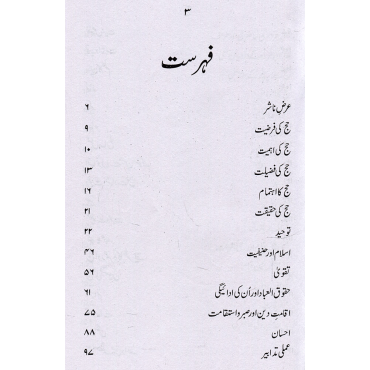 ۳
فہرست
عرض ناشر ۶
حج کی فرضیت ۹
حج کی اہمیت ۱۰
حج کی فضیلت ۱۳
حج کا اہتمام ۱۶
حج کی حقیقت ۲۱
توحید ۲۲
اسلام اور حنیفیت ۴۶
تقویٰ ۵۶
حقوق العباد اور اُن کی ادائیگی ۶۱
اقامتِ دین اور صبر و استقامت ۷۵
احسان ۸۸
عملی تدابیر ۹۷